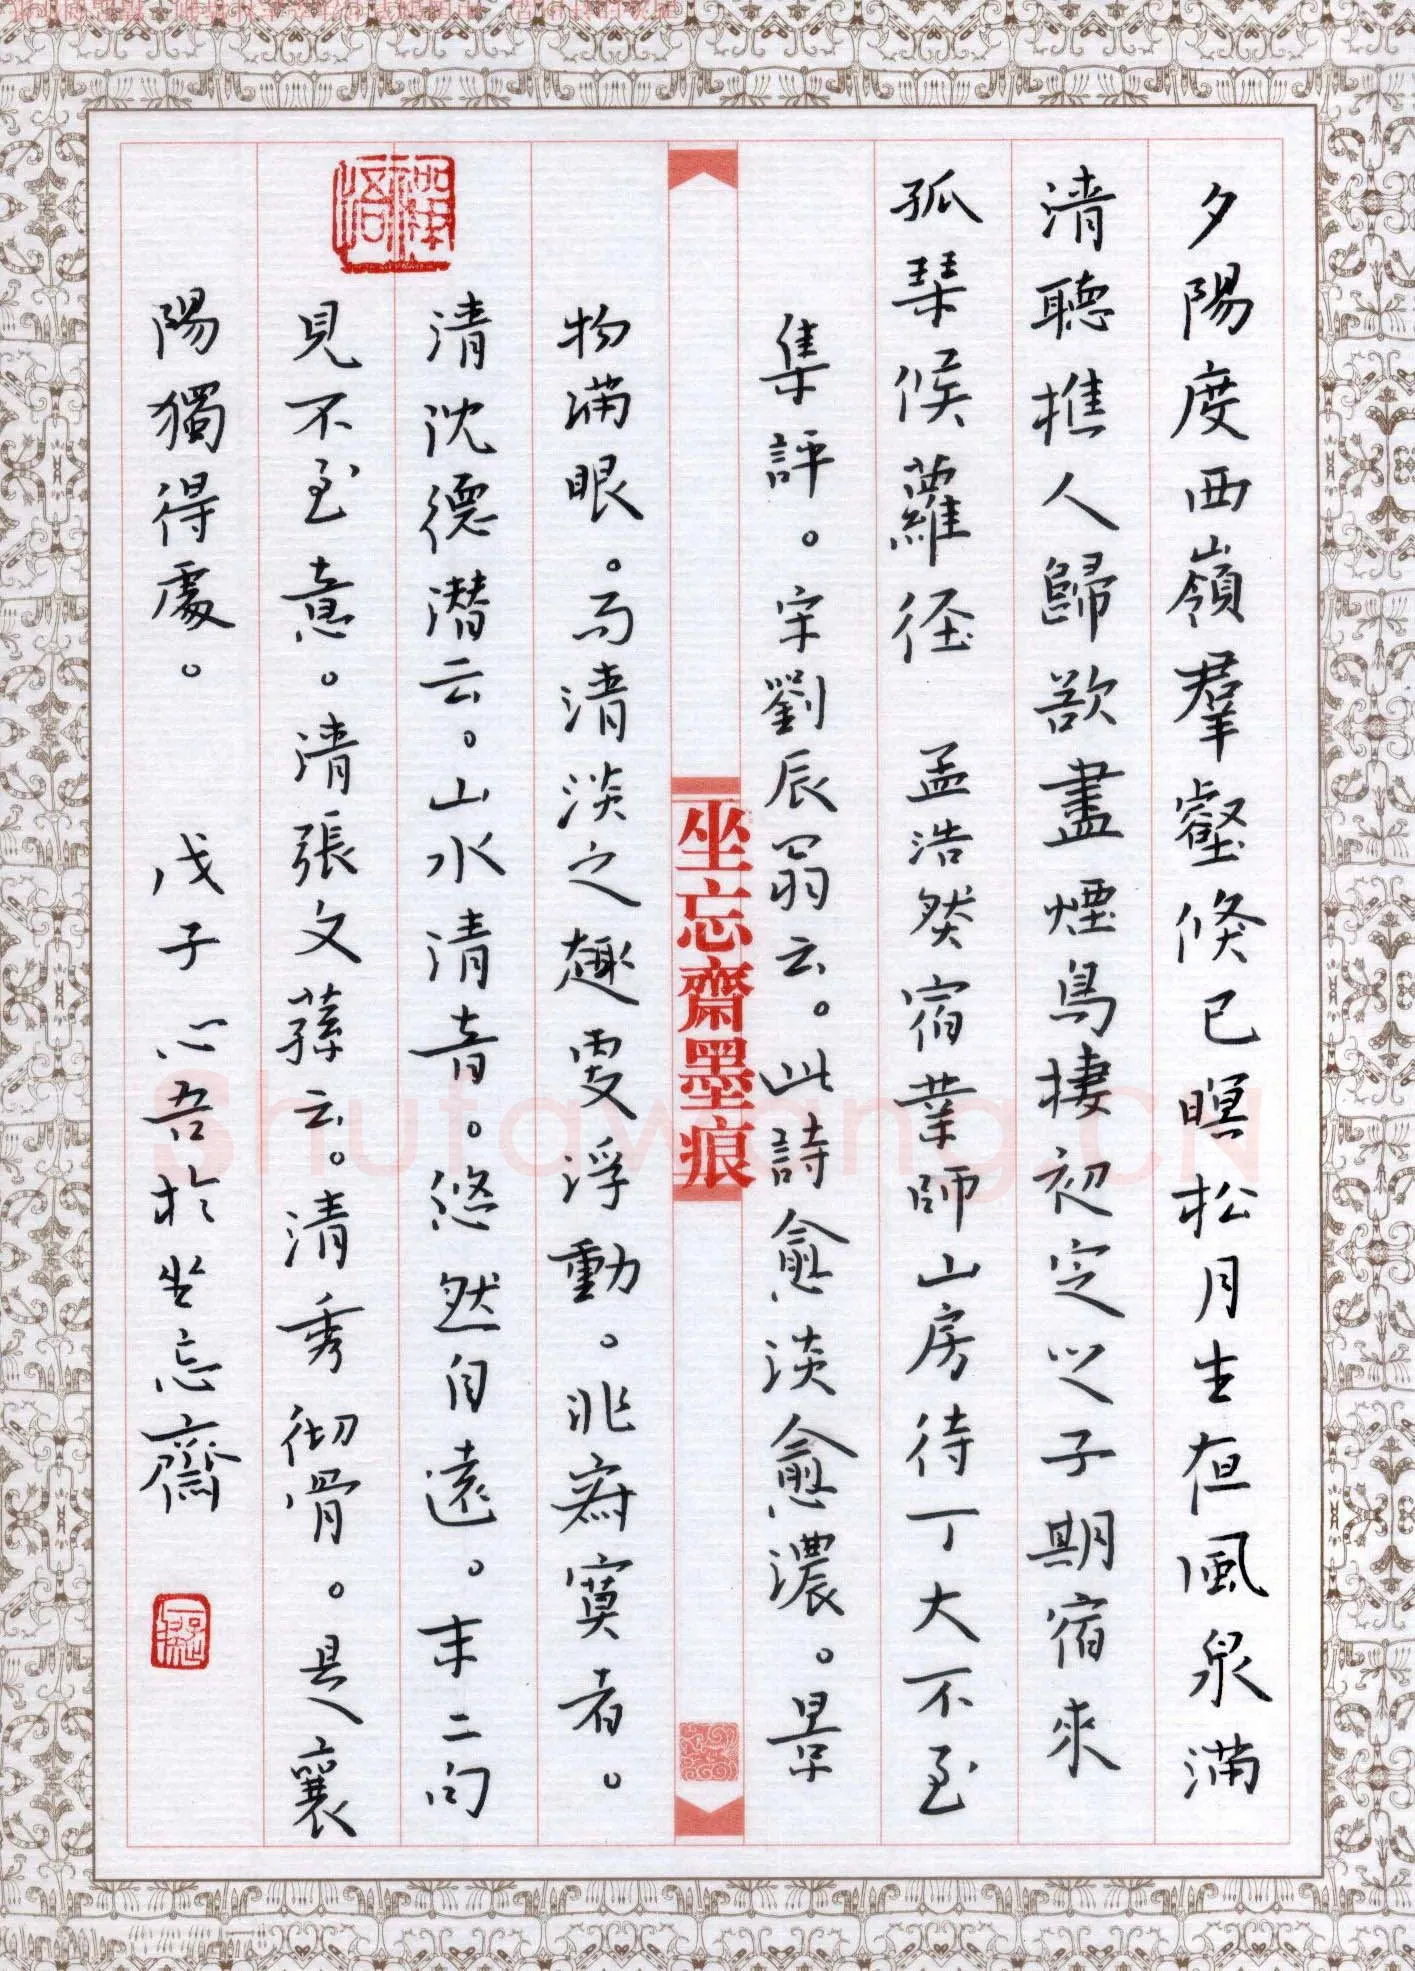 夕陽度西嶺羣壑倐已暝松月生夜風泉滿
清聽樵人歸欲盡煙鳥棲初定之子期宿來
孤琴候蘿径 孟浩然宿業師山房待丁大不至
集評。宋劉辰翁云。此詩愈淡愈濃。景
坐忘齋墨痕
物滿眼。而清淡之趣更浮動。非寂寞者。
清沈德潛云。山水清音。悠然自遠。末二句
見不至意。清張文蓀云。清秀彻骨。是襄
陽獨得處。 戊子心吾於坐忘齋
Shufawang.CN